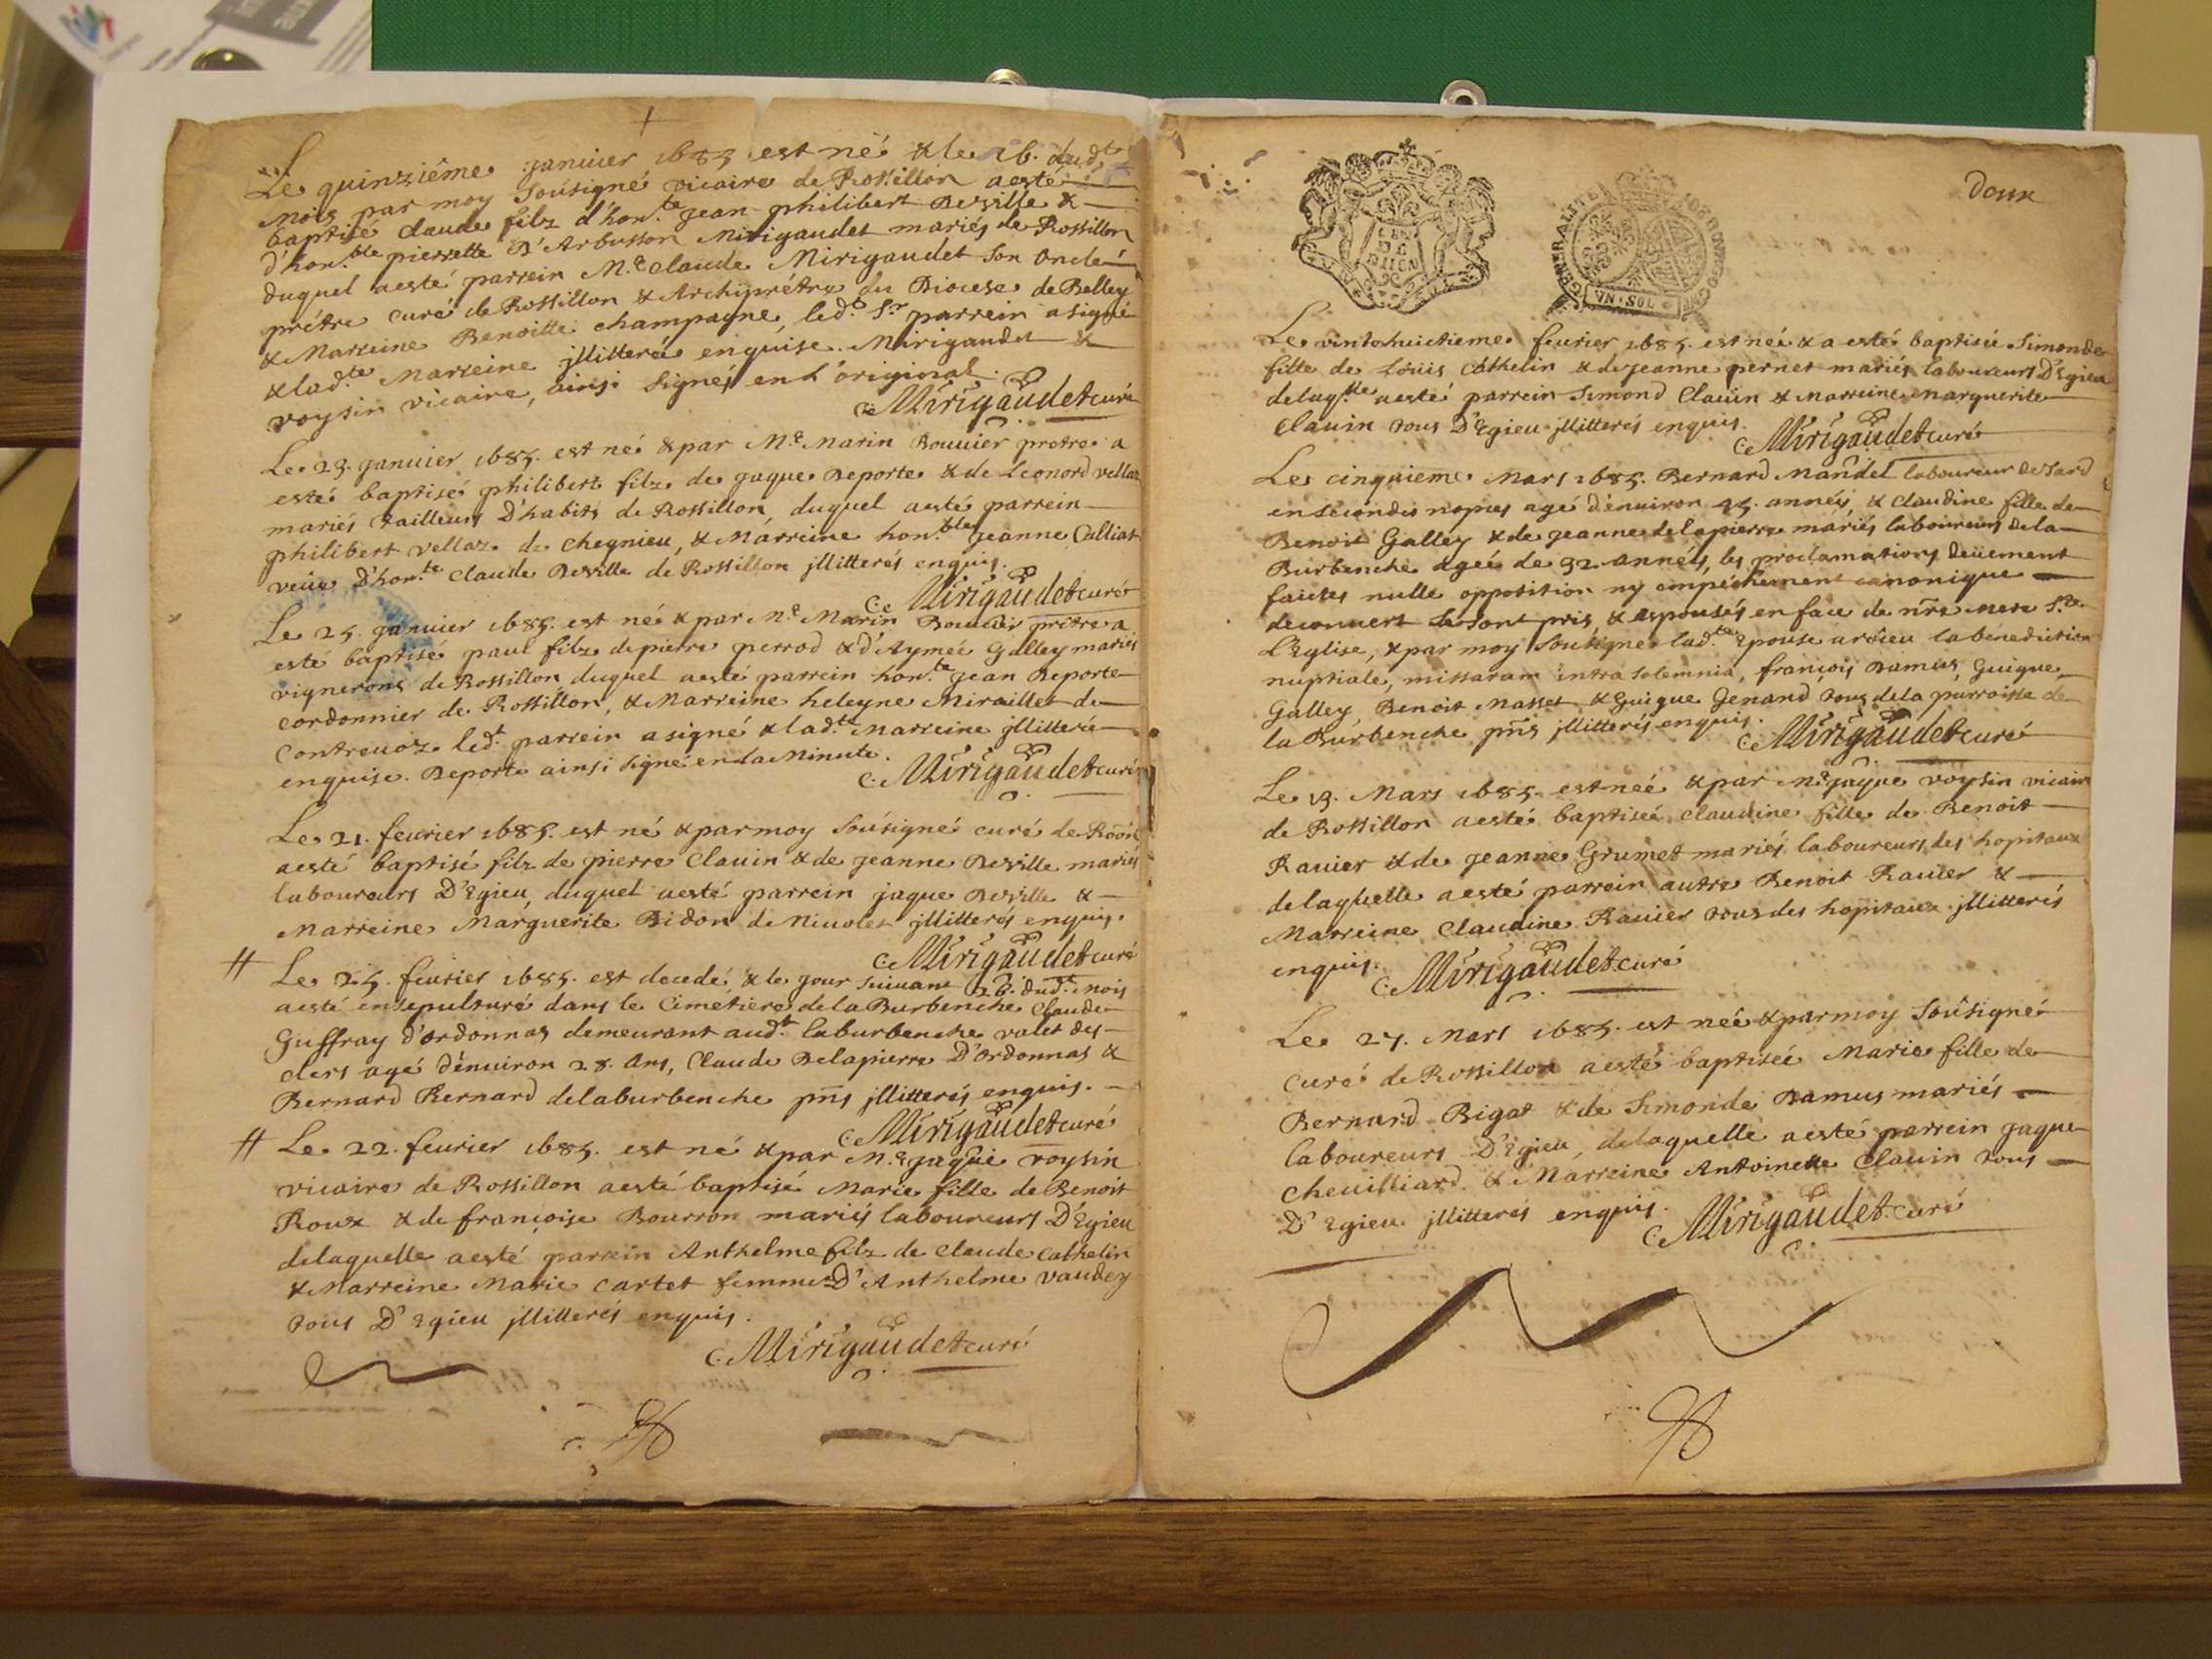 Le quinziême januier 1685 est né & le 16. dudt
mois par moy Sousigné vicaire de Rossillon a esté
baptisé claude filz d'hon.te jean philibert Deville &
d'hon.ble pierrette D'Arbusson Mirigaudet mariés de Rossillon
duquel a esté parrein M.e claude Mirigaudet Son Oncle
prêtre curé de Rossillon & Archiprétre du Diocese de Belley
& Marreine Benoitte champagne, led.t Sr parrein a signé
& lad.te Marreine jllitterée enquise. Mirigaudet &
voysin vicaire, ainsi Signés en L'original.
C. Mirigaudet curé
Le 23. januier 1685. est né & par M.e Marin Bouuier pretre a
esté baptisé philibert filz de jaque Deporte & de Leonord vellaz
mariés tailleurs D'habits de Rossillon, duquel a esté parrein
philibert vellaz de chegnieu, & Marreine hon.ble jeanne Calliat
veuue D'hon.te Claude Deville de Rossillon jllitterés enquis.
C. Mirigaudet curé
Le 25. januier 1685. est né & par M.e Marin Bouuier prêtre a
esté baptise paul filz de pierre perrod & d'Aymée Galley mariés
vignerons de Rossillon duquel a esté parrein hon.te jean Deporte
cordonnier de Rossillon, & Marreine heleyne Miraillet de
Contreuoz led.t parrein a signé & lad.te Marreine jllitterée
enquise. Deporte ainsi signé en La Minute.
C. Mirigaudet curé
Le 21. feurier 1685. est né & par moy Sousigné curé de Roôn
a esté baptisé filz de pierre Clauin & de jeanne Deville mariés
laboureurs D'Egieu, duquel a esté parrein jaque Deville &
Marreine Marguerite Bidon de Niuolet jllitterés enquis.
C. Mirigaudet curé
# Le 25. feurier 1685. est decedé, & le jour Suiuant 26. dud.t mois
a esté ensepulturé dans le Cimetiere de la Burbenche Claude
Guffray d'ordonnas demeurant aud.t laburbenche valet des
clers agé d'enuiron 28. Ans, Claude Delapierre D'Ordonnas &
Bernard Bernard delaburbenche pñs jllitterés enquis.
C. Mirigaudet curé
# Le 22. feurier 1685. est né & par M.e jaque voysin
vicaire de Rossillon a esté baptisé Marie fille de Benoit
Roux & de françoise Bourron mariés laboureurs D'Egieu
delaquelle a esté parrein Anthelme filz de Claude Cathelin
& Marreine Marie Cartet femme D'Anthelme vaudey
tous D'Egieu jllitterés enquis.
C. Mirigaudet curé
doux
GEN
DE
DIION
GENERALITE DE BOVRGOGNE
VN·SOL
Le vinthuictieme feurier 1685. est née & a esté baptisée Simonde
fille de Loüis Cathelin & de jeanne pernet mariés laboureurs D'Egieu
delaq.lle a esté parrein Simond Clauin & Marreine Marguerite
Clauin tous D'Egieu jllitterés enquis.
C. Mirigaudet curé
Le cinquieme Mars 1685. Bernard Mandel laboureur de
en secondes nopces agé d'enuiron 45. années, & Claudine fille de
Benoit Galley & de jeanne delapierre mariés laboureurs dela
Burbenche agée de 32 années, les proclamations deüement
faictes nulle opposition ny empeschement canonique
decouuert se sont pris, & espousés en face de nrê mere Ste
L'Eglise, & par moy Sousigné lad.te Epouse a rêceu la benediction
nuptiale, missaram intra solemnia, françois Damus, Guigue
Galley, Benoit Masset & Guigue Genand tous dela parroisse de
la Burbenche pñs jllitterés enquis.
C. Mirigaudet curé
Le 13. Mars 1685. est née & par M.e jaque voysin vicaire
de Rossillon a esté baptisée Claudine fille de Benoit
Rauier & de jeanne Grumet mariés laboureurs des hopitaux
delaquelle a esté parrein autre Benoit Rauier &
Marreine Claudine Rauier tous des hopitaux jllitterés
enquis.
C. Mirigaudet curé
Le 27. Mars 1685. est née & par moy Soûsigné
curé de Rossillon a esté baptisée Marie fille de
Bernard Bigat & de Simonde Damus mariés
laboureurs D'Egieu, delaquelle a esté parrein jaque
Cheuilliard & Marreine Antoinette Clauin tous
D'Egieu jllitterés enquis.
C. Mirigaudet curé